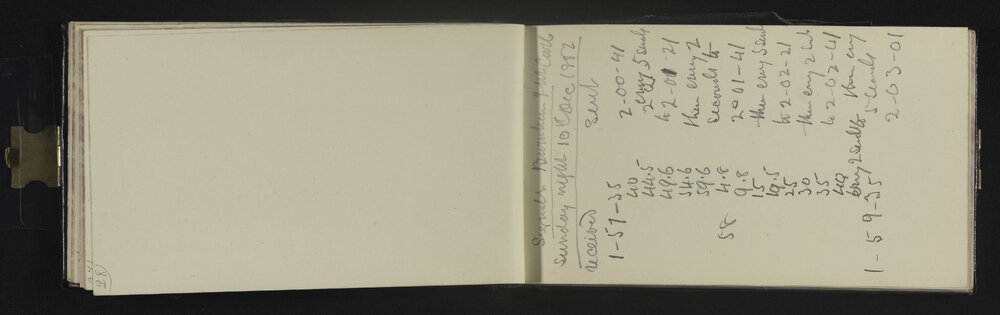 Signals
Sunday night 10th Dec 1882
received
sent
1-57-35
40
44.5
49.6
54.6
59.6
58
4.8
9.8
15
19.5
25
30
35
40
every 2 sec to
1-59-35
2-00-41
every 5 secs
to 2-01-21
then every 2
seconds to
2-01-41
then every 5 sec
to 2-02-21
then every 2 sec
to 2-02-41
then every
5 seconds
2-03-01
28